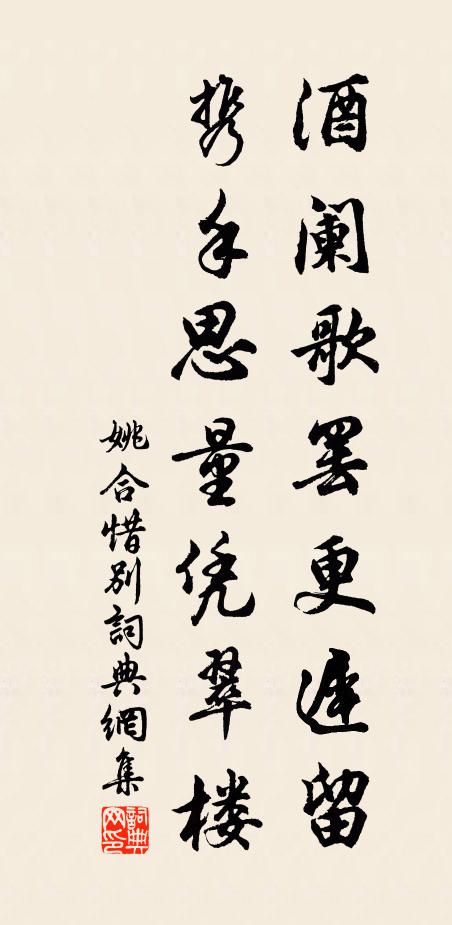 酒阑歌罢更迟留
携手思量凭翠楼
姚合惜別詞典網集
詞典
网印